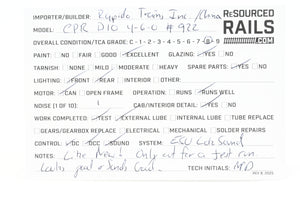 IMPORTER/BUILDER: Rapido Trains Inc. /China
MODEL: CPR D10 4-6-0 #922
RESOURCED
RAILS
.COM
OVERALL CONDITION/TCA GRADE: C-1-2-3-4-5-6-7-8-9
PAINT: NO | FAIR | GOOD | EXCELLENT GLAZING: YES | NO
TARNISH: NONE | MILD | MODERATE | HEAVY SPARE PARTS: YES | NO
LIGHTING: FRONT | REAR | INTERIOR DIRECTIONAL: YES | NO
MOTOR: CAN | OPEN FRAME OPERATION: RUNS | RUNS WELL
NOISE (1 OF 10): 1 CAB/INTERIOR DETAIL: YES | NO
WORK COMPLETED: TEST | EXTERNAL LUBE | INTERNAL LUBE | TOUCH UP
GEARS/GEARBOX REPLACED | ELECTRICAL | MECHANICAL | SOLDER REPAIRS
CONTROL: DC | DCC | SOUND SYSTEM: ESU LokSound
NOTES: Like New! Only out for a test run.
Looks good & Sounds Good.
TECH INITIALS:
REV 8, 2025